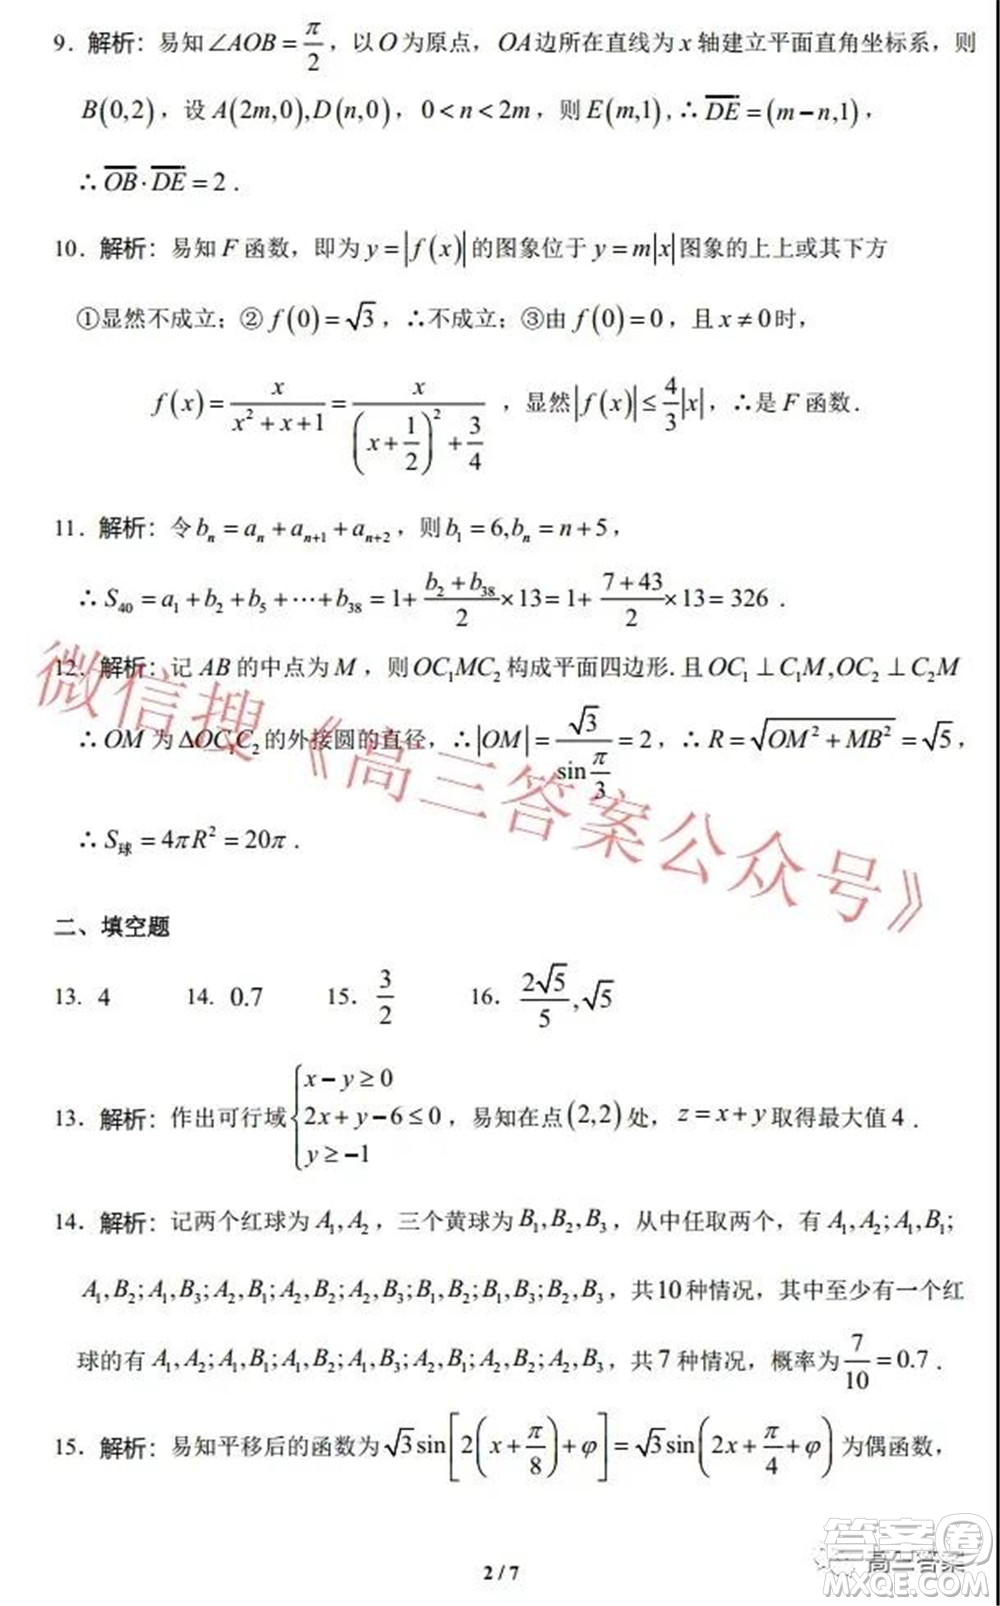 9. 解析：易知∠AOB = π/2，以 O 为原点，OA 边所在直线为 x 轴建立平面直角坐标系，则
B(0,2)，设 A(2m,0), D(n,0)，0 < n < 2m，则 E(m,1)，∴ DE = (m − n,1)，
∴ OB · DE = 2．
10．解析：易知 F 函数，即为 y = |f(x)| 的图象位于 y = m|x| 图象的上上或其下方
①显然不成立；② f(0) = √3，∴不成立；③由 f(0) = 0，且 x ≠ 0 时，
f(x) = x/(x² + x + 1) = x/((x + 1/2)² + 3/4)，显然 |f(x)| ≤ 4/3|x|，∴是 F 函数．
11．解析：令 bₙ = aₙ + aₙ₊₁ + aₙ₊₂，则 b₁ = 6, bₙ = n + 5，
∴ S₄₀ = a₁ + b₂ + b₅ + ⋯ + b₃₈ = 1 + (b₂ + b₃₈)/2 × 13 = 1 + (7 + 43)/2 × 13 = 326．
12．解析：记 AB 的中点为 M，则 OC₁MC₂ 构成平面四边形. 且 OC₁ ⊥ C₁M, OC₂ ⊥ C₂M
∴ OM 为 ΔOC₁C₂ 的外接圆的直径，∴ |OM| = √3/sin(π/3) = 2，∴ R = √(OM² + MB²) = √5，
∴ S球 = 4πR² = 20π．
二、填空题
13. 4 14. 0.7 15. 3/2 16. 2√5/5, √5
13．解析：作出可行域 { x − y ≥ 0 2x + y − 6 ≤ 0 y ≥ −1，易知在点 (2,2) 处，z = x + y 取得最大值 4．
14．解析：记两个红球为 A₁, A₂，三个黄球为 B₁, B₂, B₃，从中任取两个，有 A₁, A₂; A₁, B₁;
A₁, B₂; A₁, B₃; A₂, B₁; A₂, B₂; A₂, B₃; B₁, B₂; B₁, B₃; B₂, B₃，共10 种情况，其中至少有一个红
球的有 A₁, A₂; A₁, B₁; A₁, B₂; A₁, B₃; A₂, B₁; A₂, B₂; A₂, B₃，共 7 种情况，概率为 7/10 = 0.7．
15．解析：易知平移后的函数为 √3 sin[2(x + π/8) + φ] = √3 sin(2x + π/4 + φ) 为偶函数，
2 / 7
微信搜《高三答案公众号》
高三答案
答案圈
MXQE.COM